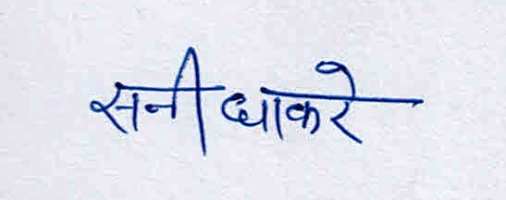 सनी धाकरे